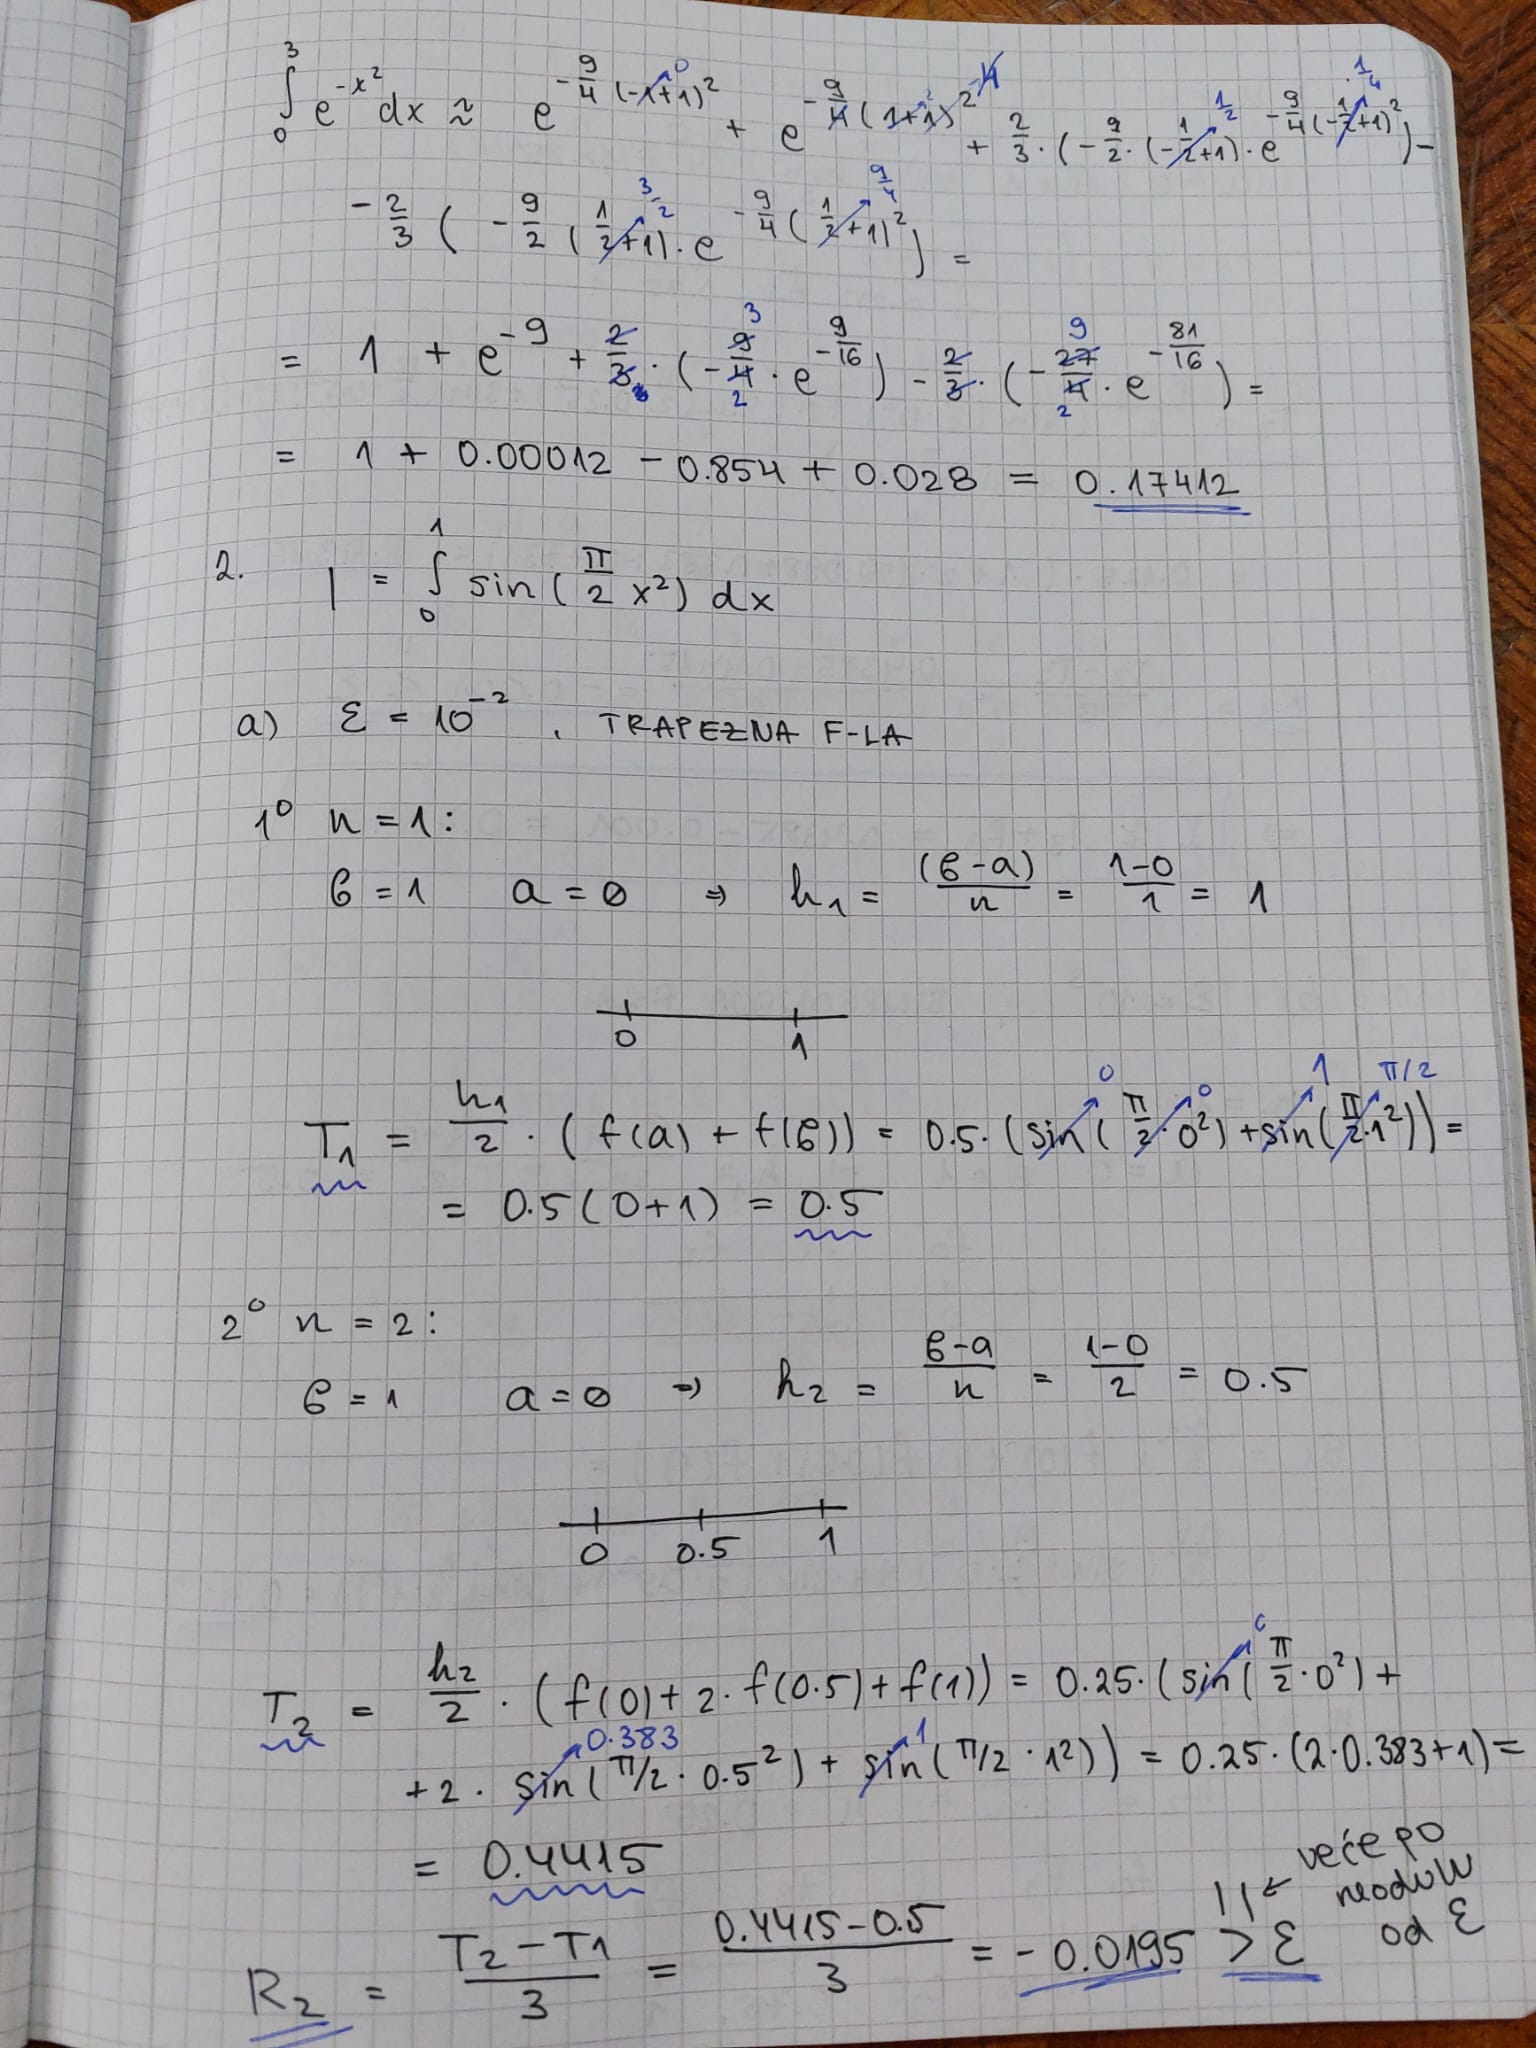 ∫₀³ e^(-x²) dx ≈ e^(-9/4 (-1+1)²) ⁰ + e^(-9/4 (1+1)²) ² ⁻⁴ + 2/3 · (-9/2 · (-1/2+1) · e^(-9/4 (-1/2+1)²)) - 1/2 1/4
- 2/3 ( -9/2 (1/2+1) · e^(-9/4 (1/2+1)²) ) = 3/2 9/4
= 1 + e^(-9) + 2/3 · (-9/4 · e^(-9/16)) - 2/3 · (-27/4 · e^(-81/16)) = 3 2 9 2
= 1 + 0.00012 - 0.854 + 0.028 = 0.17412
2. I = ∫₀¹ sin(π/2 x²) dx
a) ε = 10⁻² , TRAPEZNA F-LA
1° n = 1:
b = 1 a = 0 ⇒ h₁ = (b-a)/n = (1-0)/1 = 1
0 1
T₁ = h₁/2 · (f(a) + f(b)) = 0.5 · (sin(π/2 · 0²) + sin(π/2 · 1²)) = 0 0 1 π/2
= 0.5(0+1) = 0.5
2° n = 2:
b = 1 a = 0 ⇒ h₂ = (b-a)/n = (1-0)/2 = 0.5
0 0.5 1
T₂ = h₂/2 · (f(0) + 2 · f(0.5) + f(1)) = 0.25 · (sin(π/2 · 0²) + 0
+ 2 · sin(π/2 · 0.5²) + sin(π/2 · 1²)) = 0.25 · (2 · 0.383 + 1) = 0.383 1
= 0.4415
R₂ = (T₂ - T₁)/3 = (0.4415 - 0.5)/3 = -0.0195 > ε
| | ← veće po
modulu
od ε